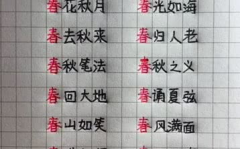 春花秋月 春光如海
春去秋来 春归人老
春秋笔法 春秋之义
春回大地 春诵夏弦
春山如笑 春风满面